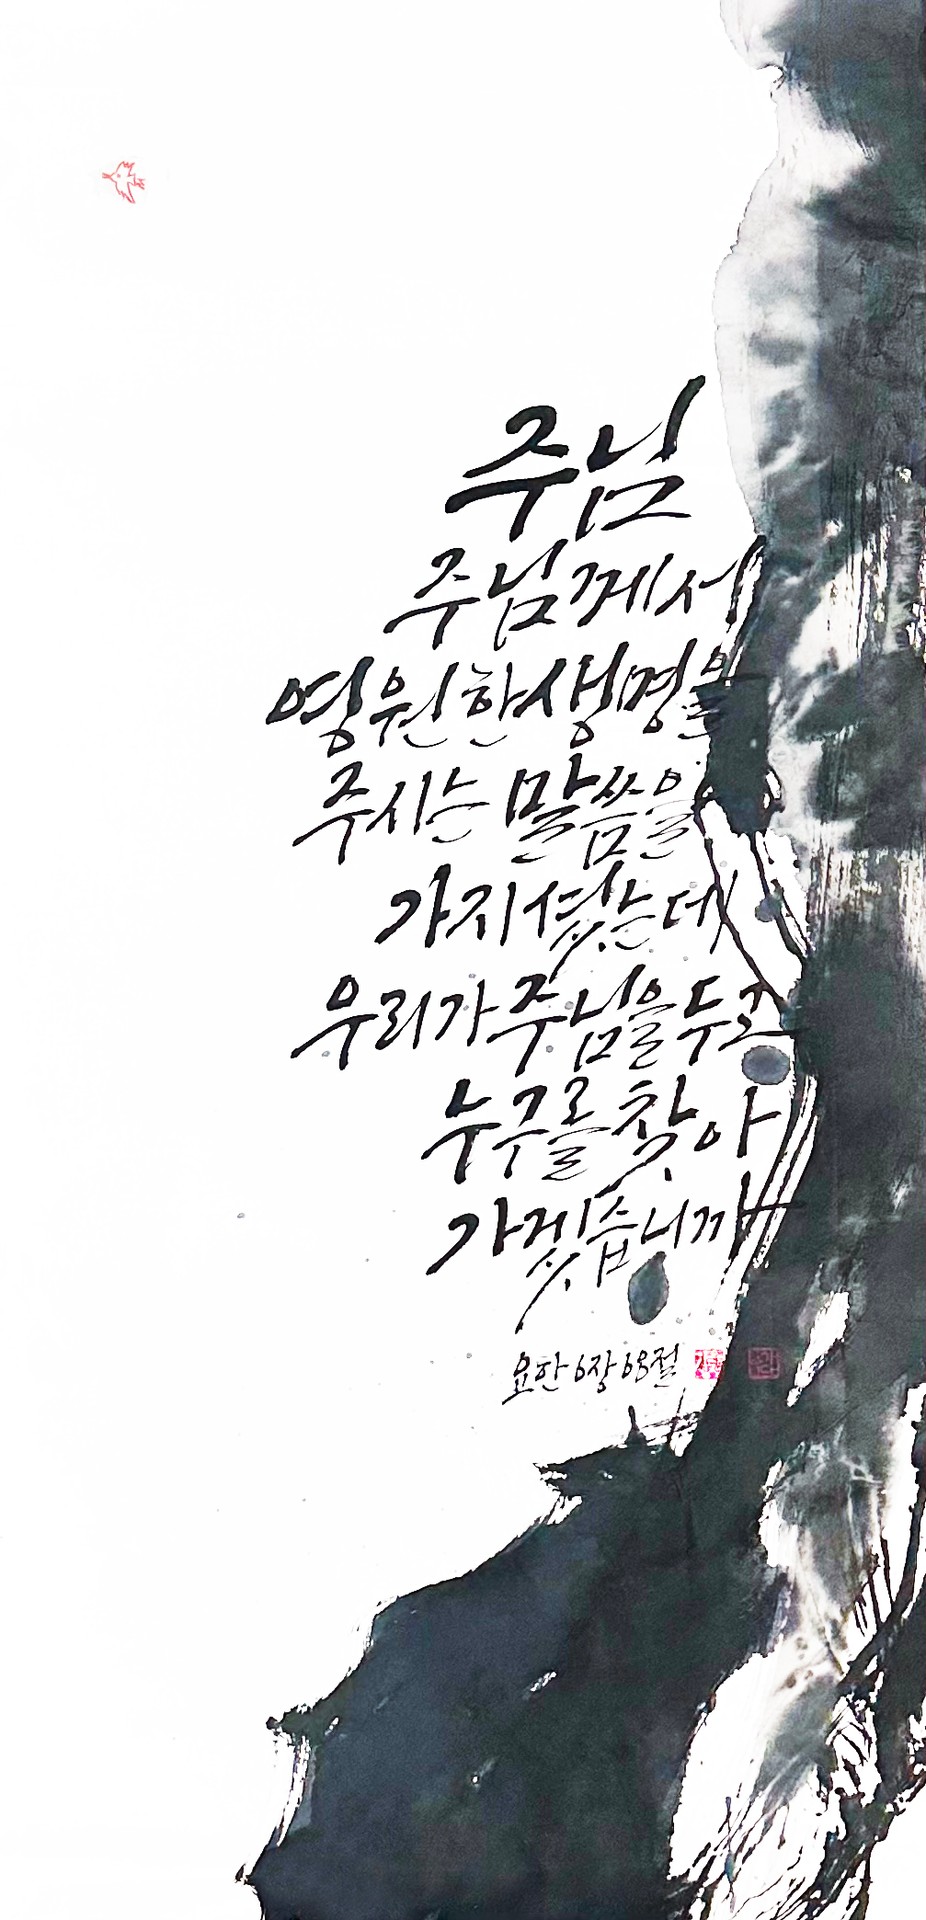 주님
주님께서
영원한 생명을
주시는 말씀을
가지셨는데
우리가 주님을 두고
누구를 찾아
가겠습니까
요한 6장 68절